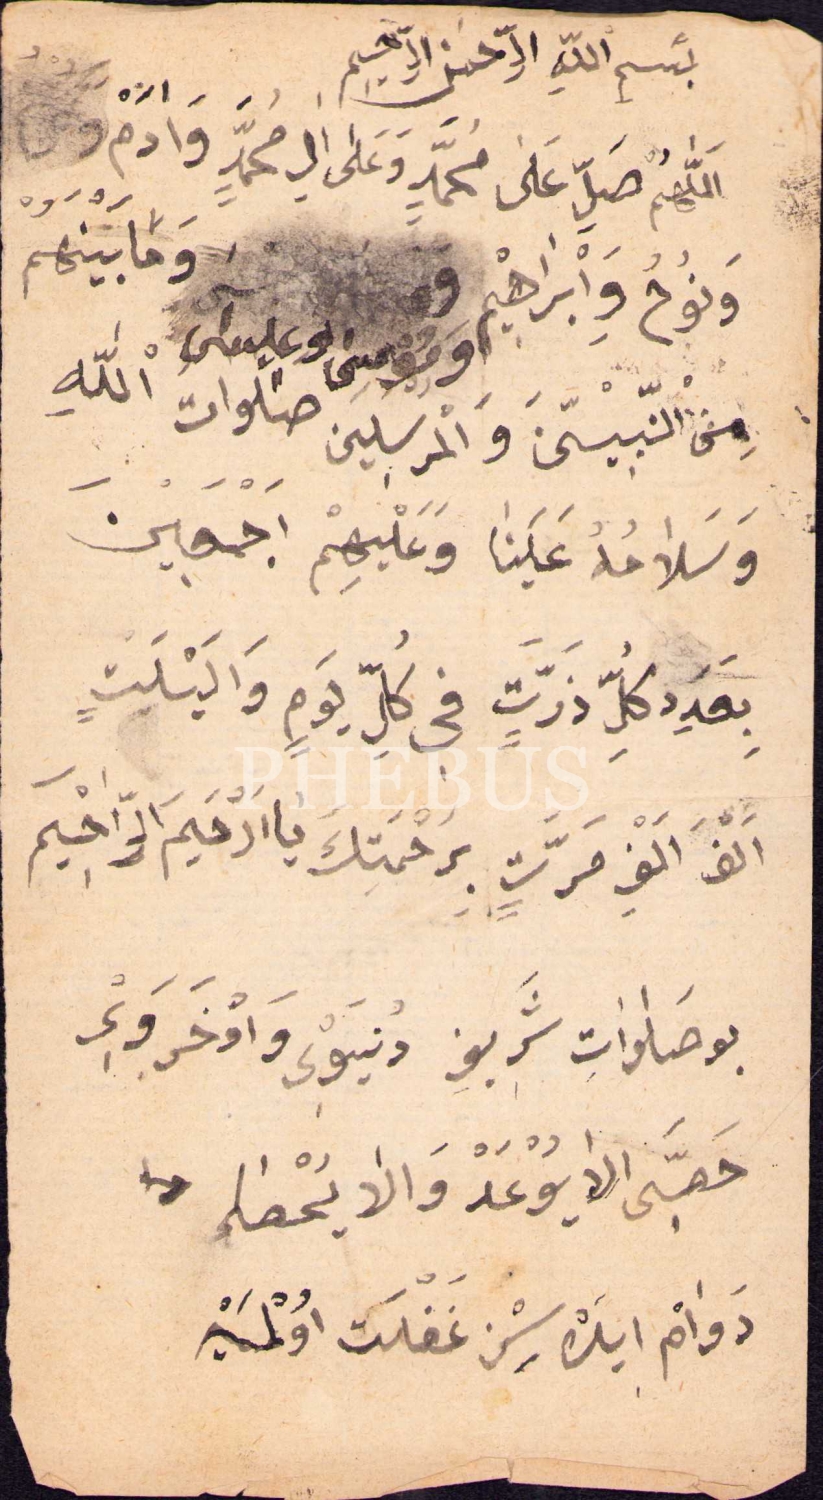 بِسْمِ اللّٰهِ الرَّحْمٰنِ الرَّحِيمِ
اَللّٰهُمَّ صَلِّ عَلٰى مُحَمَّدٍ وَعَلٰى اٰلِ مُحَمَّدٍ وَاٰدَمْ
وَنُوحُ وَاِبْرَاهِيْمِ وَمُوْسٰى وَعِيسٰى وَمَا بَيْنَهُمْ
مِنَ النَّبِيّيْنَ وَالْمُرْسَلِينَ صَلَوَاتُ اللّٰهِ
وَسَلَامُهُ عَلَيْنَا وَعَلَيْهِمْ اَجْمَعِينَ
بِعَدَدِ كُلِّ ذَرَّتٍ فِى كُلِّ يَوْمٍ وَالَيْلَتٍ
اَلْفَ اَلْفِ مَرَّتٍ بِرَحْمَتِكَ يَا اَرْحَمَ الرَّاحِمِيْنَ
بو صَلَوَاتِ شَرِيفِ دُنْيَوِى وَاُوْخَرَوِى
حَصَّى الا يُوْعَدْ وَالَا يُحْصٰى
دَوَامْ ايدَرْسِڭزْ غَفْلَتْ اوُلْمَيَهْ
PHEBUS